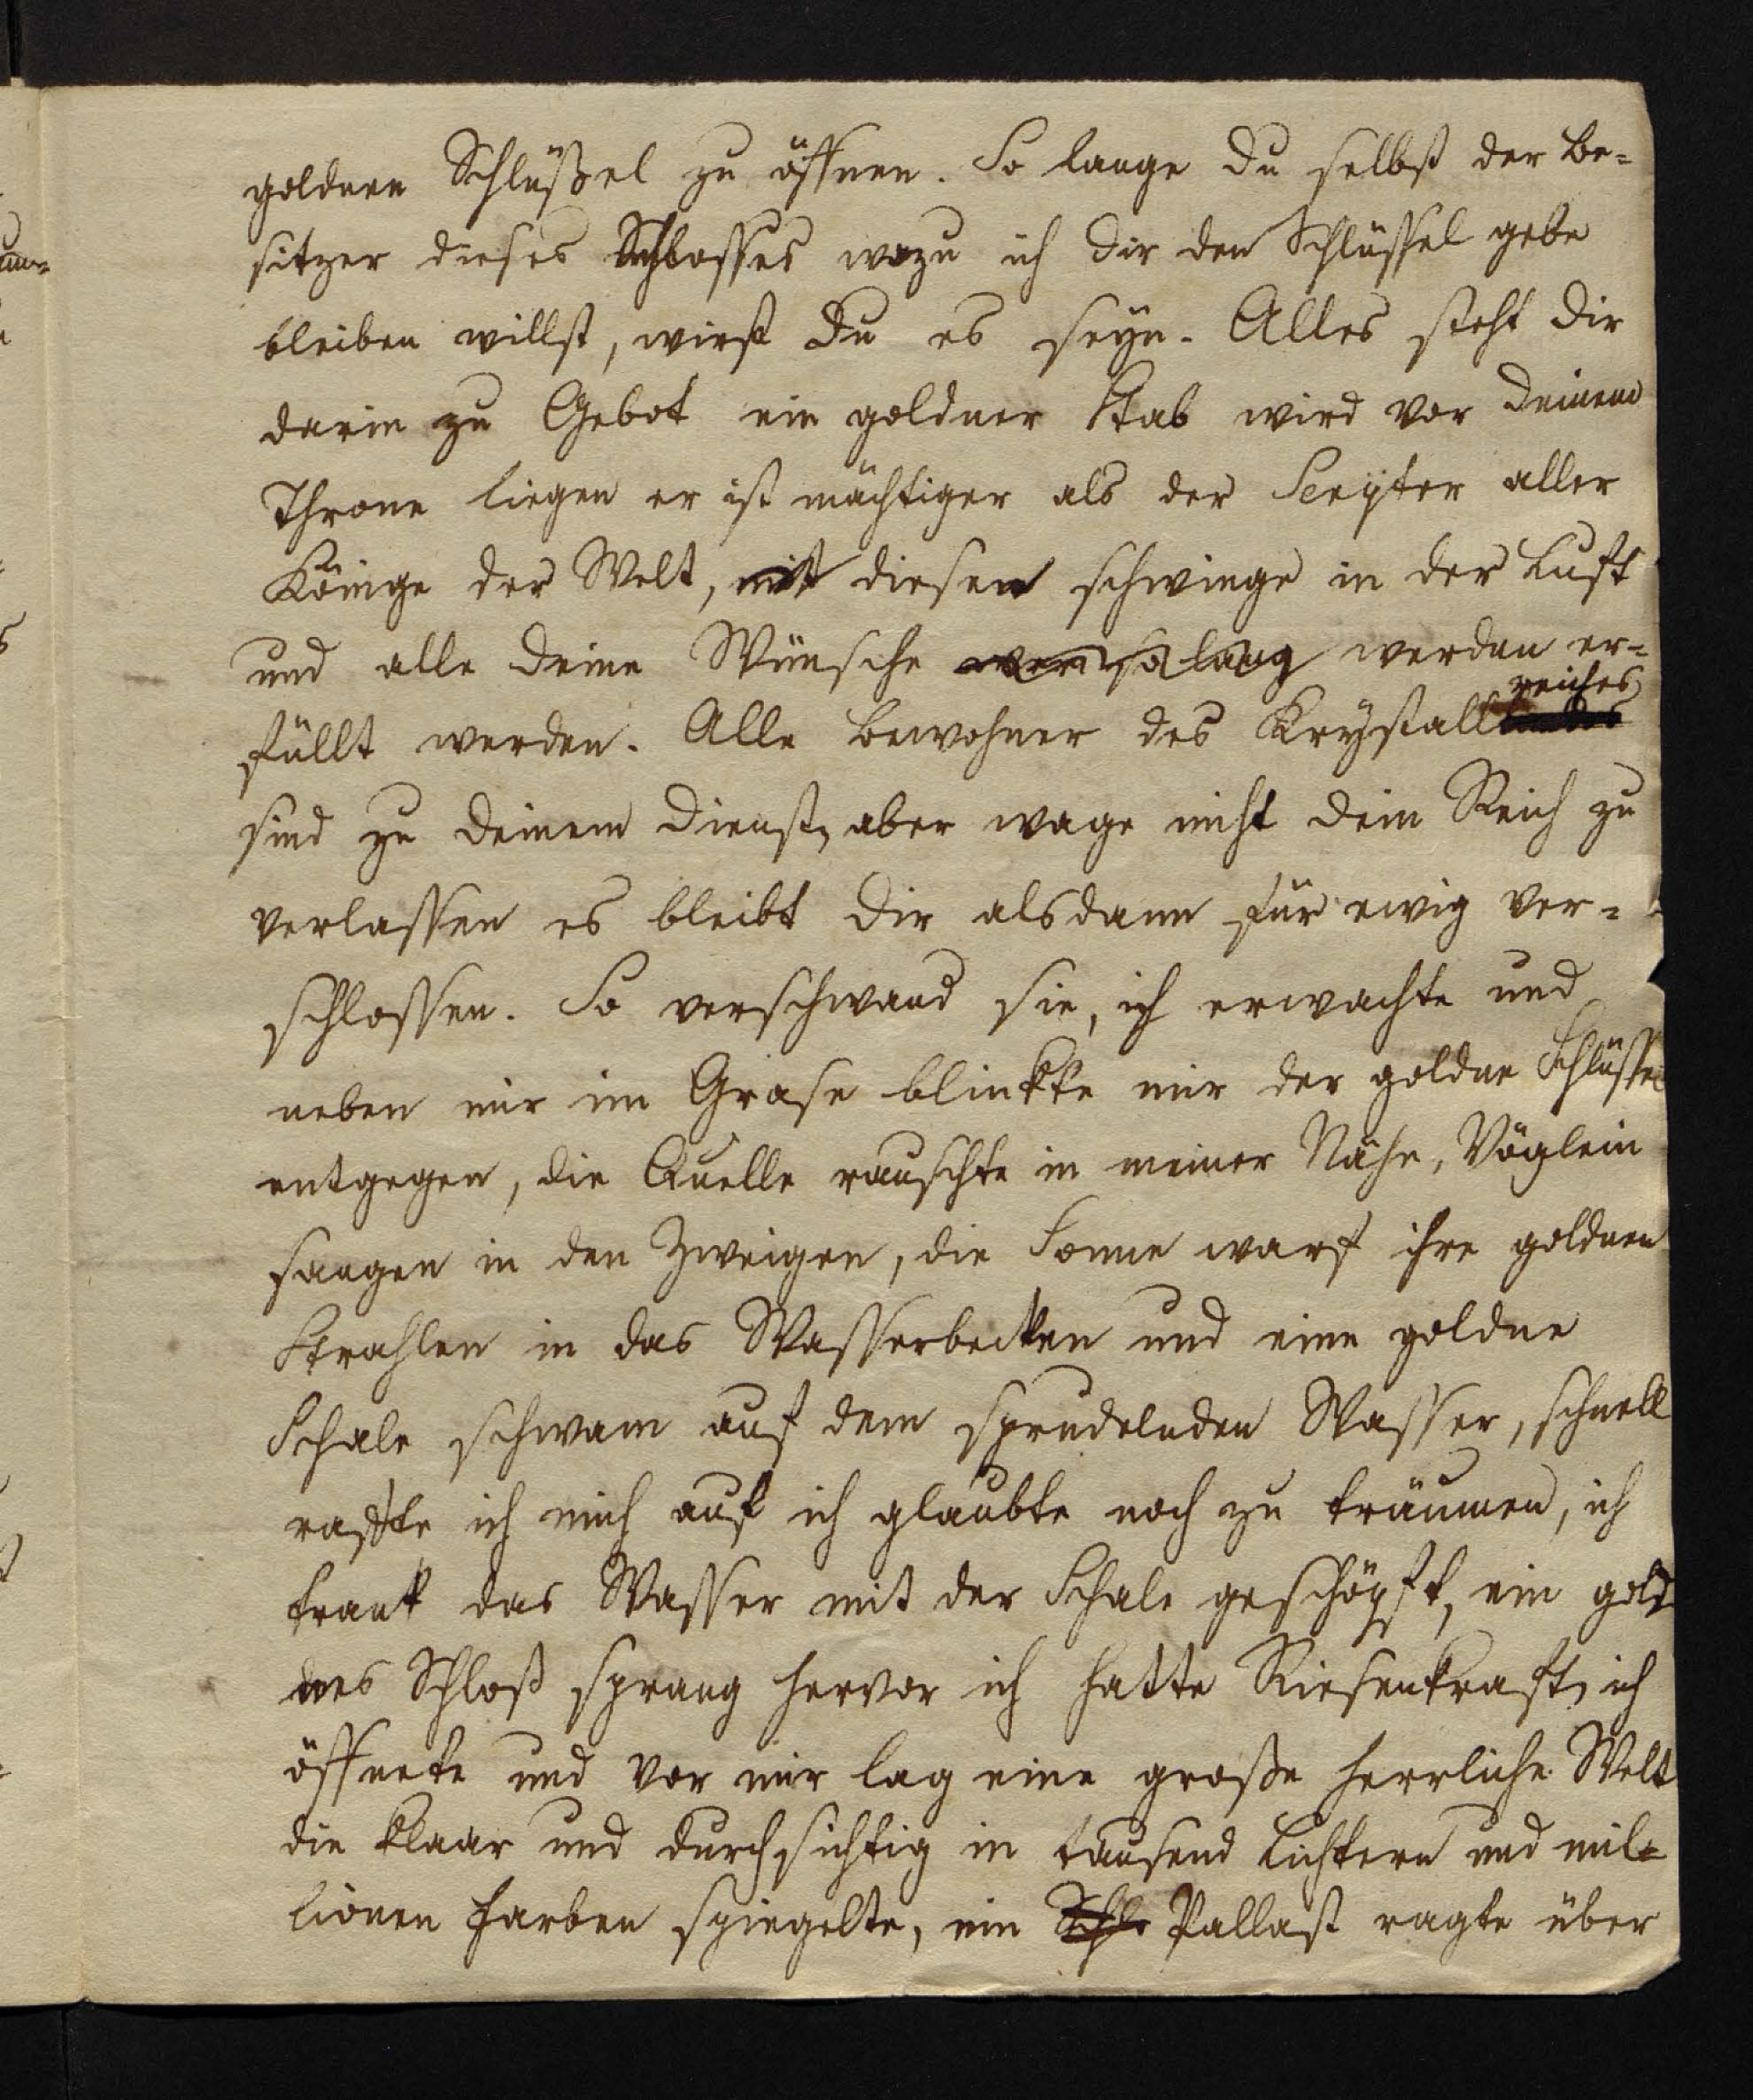 goldnen Schlüßel zu öffnen. So lange du selbst der Be-
sitzer dieses Schlosses wozu ich dir den Schlüssel gebe
bleiben willst, wirst du es seyn. Alles steht dir
darin zu Gebot ein goldner Stab wird vor deinem
Throne liegen er ist mächtiger als der Scepter aller
Könige der Welt, mit diesen schwinge in der Luft
und alle deine Wünsche werden er-
füllt werden. Alle Bewohner des Krystallreiches
sind zu deinem Dienst, aber wage nicht dein Reich zu
verlassen es bleibt dir alsdann für ewig ver-
schlossen. So verschwand sie, ich erwachte und
neben mir im Grase blinkte mir der goldne Schlüssel
entgegen, die Quelle rauschte in meiner Nähe, Vöglein
sangen in den Zweigen, die Sonne warf ihre goldnen
Strahlen in das Wasserbecken und eine goldne
Schale schwam auf dem sprudelnden Wasser, schnell
raffte ich mich auf ich glaubte noch zu träumen, ich
trank das Wasser mit der Schale geschöpft, ein gold
nes Schloß sprang hervor ich hatte Riesenkraft, ich
öffnete und vor mir lag eine große herrliche Welt
die klaar und durchsichtig in tausend Lichtern und mil-
lionen Farben spiegelte, ein Schlo Pallast ragte über